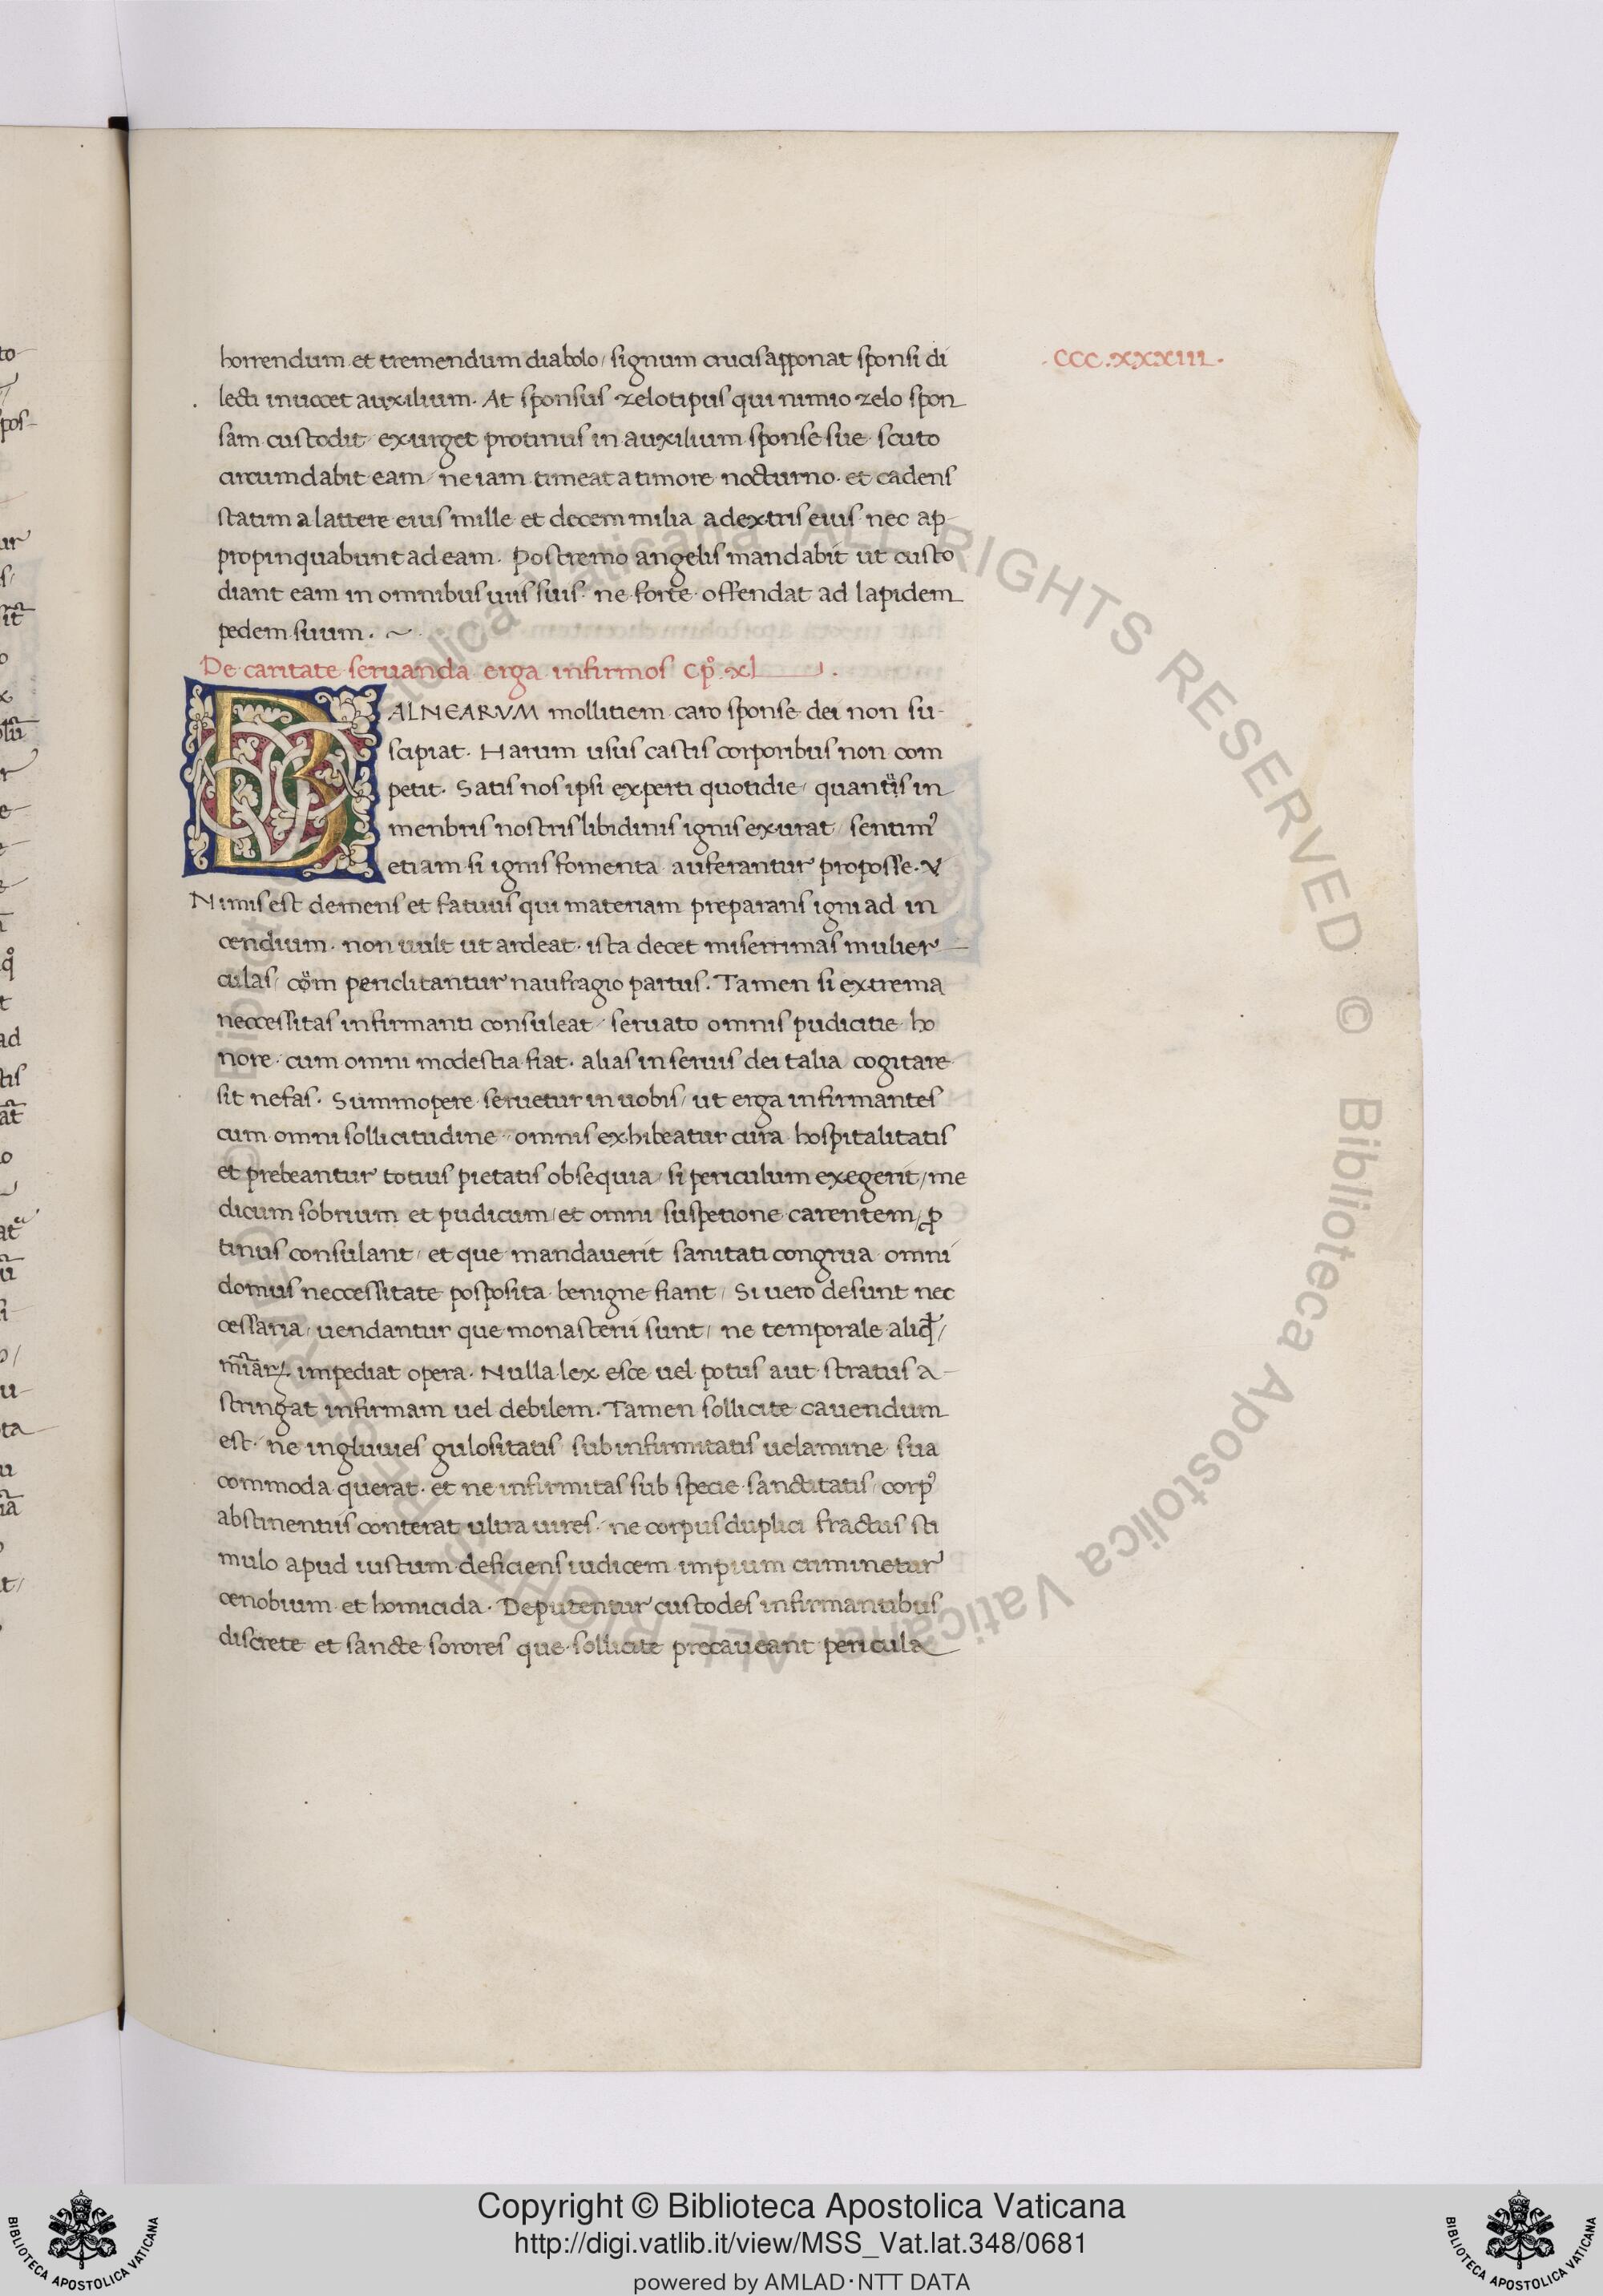 horrendum et tremendum diabolo/ signum crucis apponat sponsi di
.CCC.XXXIII.
lecti inuocet auxilium. At sponsus zelotipus qui nimio zelo spon
sam custodit exurget protinus in auxilium sponse sue scuto
circumdabit eam/ ne iam timeat a timore nocturno. et cadens
statim a lattere eius mille et decem milia a dextris eius nec ap-
propinquabunt ad eam. Postremo angelis mandabit ut custo
diant eam in omnibus uiis suis. ne forte offendat ad lapidem
pedem suum. ~
De caritate seruanda erga infirmos Cpͦ. xl.
BALNEARVM mollitiem caro sponse dei non su-
scipiat. Harum usus castis corporibus non com
petit. Satis nos ipsi experti quotidie/ in
menbris nostris libidinis ignis exurat/ sentimꝰ
etiam si ignis fomenta auferantur proposse.
Nimis est demens et fatuus qui materiam preparans igni ad in
cendium. non uult ut ardeat. ista decet miserrimas mulier
culas/ periclitantur naufragio partus. Tamen si extrema
neccessitas infirmanti consuleat/ seruato omnis pudicitie ho
nore. cum omni modestia fiat. alias in seruis dei talia cogitare
sit nefas. Summopere seruetur in uobis/ ut erga infirmantes
cum omni sollicitudine omnis exhibeatur cura hospitalitatis
et prebeantur totius pietatis obsequia/ si periculum exegerit/ me
dicum sobrium et pudicum/ et omni suspetione carentem/ ꝓ
tinus consulant/ et que mandauerit sanitati congrua omni
domus neccessitate posposita benigne fiant/ Si uero desunt nec
cessaria/ uendantur que monasterii sunt/ ne temporale aliqđ/
impediat opera. Nulla lex esce uel potus aut stratus a-
stringat infirmam uel debilem. Tamen sollicite cauendum
est. ne ingluuies gulositatis sub infirmitatis uelamine sua
commoda querat. et ne infirmitas sub specie sanctitatis/ corpꝰ
abstinentiis conterat ultra uires. ne corpus duplici fractus sti
mulo apud iustum deficiens iudicem impium criminetur
cenobium et homicida. Deputentur custodes infirmantibus
discrete et sancte sorores que sollicite precaueant pericula
Copyright © Biblioteca Apostolica Vaticana
http://digi.vatlib.it/view/MSS_Vat.lat.348/0681
powered by AMLAD·NTT DATA
BIBLIOTECA APOSTOLICA VATICANA
BIBLIOTECA APOSTOLICA VATICANA
© Biblioteca Apostolica Vaticana ALL RIGHTS RESERVED © Biblioteca Apostolica Vaticana ALL RIGHTS RESERVED